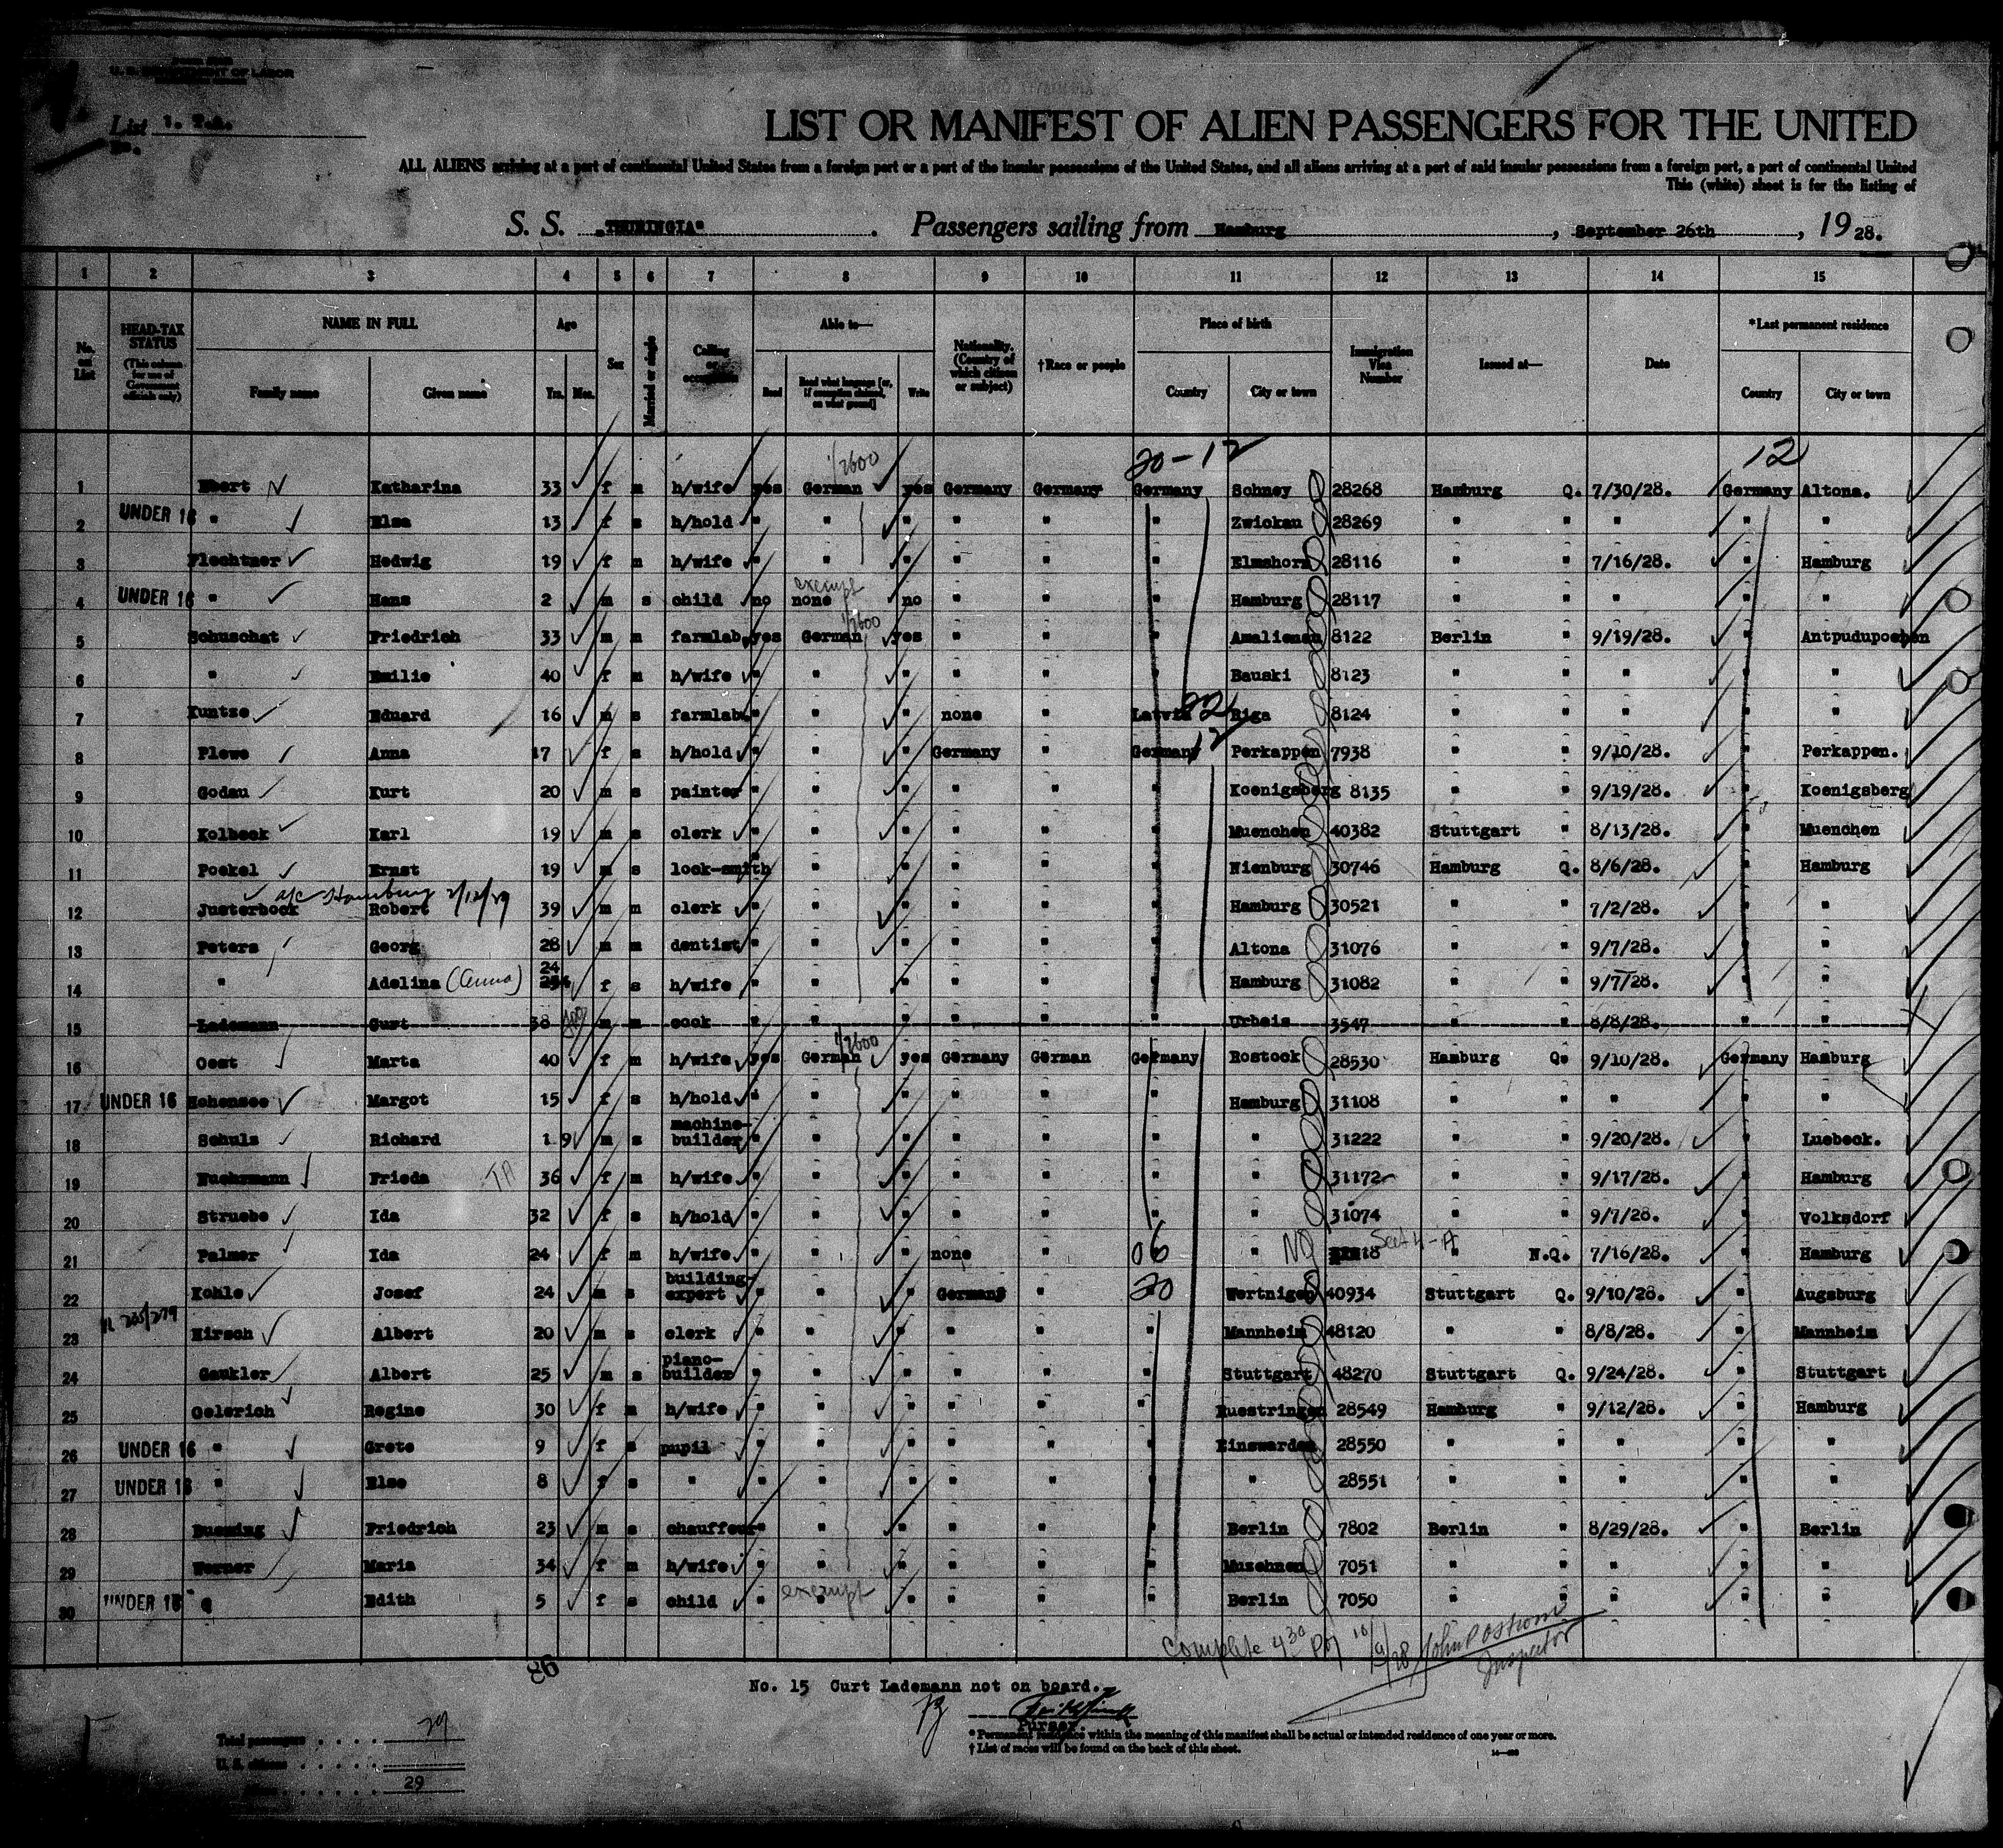 U. S. DEPARTMENT OF LABOR
List 1.
No.
LIST OR MANIFEST OF ALIEN PASSENGERS FOR THE UNITED
ALL ALIENS arriving at a port of continental United States from a foreign port or a port of the insular possessions of the United States, and all aliens arriving at a port of said insular possessions from a foreign port, a port of continental United
This (white) sheet is for the listing of
S. S. "THURINGIA" . Passengers sailing from Hamburg , September 26th , 19 28.
1 2 3 4 5 6 7 8 9 10 11 12 13 14 15
No. on List HEAD-TAX STATUS (This column for use of Government officials only) NAME IN FULL Family name Given name Age Yrs. Mos. Sex Married or single Calling or occupation Able to— Read Read what language [or, if exemption claimed, on what ground] Write Nationality. (Country of which citizen or subject) †Race or people Place of birth Country City or town Immigration Visa Number Issued at— Date *Last permanent residence Country City or town
1/2600 20-12 12
1 Ebert Katharina 33 f m h/wife yes German yes Germany Germany Germany Sohney 28268 Hamburg Q. 7/30/28. Germany Altona.
2 UNDER 16 " Elsa 13 f s h/hold " " " " " " Zwickau 28269 " " " " "
3 Flechtner Hedwig 19 f m h/wife " " " " " " Elmshorn 28116 " " 7/16/28. " Hamburg
exempt
4 UNDER 16 " Hans 2 m s child no none no " " " Hamburg 28117 " " " " "
1/2600
5 Schuschat Friedrich 33 m m farmlab. yes German yes " " " Amalienau 8122 Berlin " 9/19/28. " Antpudupoehen
6 " Emilie 40 f m h/wife " " " " " " Bauski 8123 " " " " "
7 Kuntze Eduard 16 m s farmlab. " " " none " Latvia 22 Riga 8124 " " " " "
8 Plewe Anna 17 f s h/hold " " " Germany " Germany 12 Perkappen 7938 " " 9/10/28. " Perkappen.
9 Godau Kurt 20 m s painter " " " " " " Koenigsberg 8135 " " 9/19/28. " Koenigsberg
10 Kolbeck Karl 19 m s clerk " " " " " " Muenchen 40382 Stuttgart " 8/13/28. " Muenchen
11 Poekel Ernst 19 m s lock-smith " " " " " Nienburg 30746 Hamburg Q. 8/6/28. " Hamburg
a/c Hamburg 2/12/29
12 Justerbock Robert 39 m m clerk " " " " " " Hamburg 30521 " " 7/2/28. " "
13 Peters Georg 28 m m dentist " " " " " " Altona 31076 " " 9/7/28. " "
24
14 " Adelina (Anna) f s h/wife " " " " " " Hamburg 31082 " " 9/7/28. " "
15 Lademann Curt 38 m m cook " " " " " " Urbeis 3547 " " 8/8/28. " "
1/2600
16 Oest Marta 40 f m h/wife yes German yes Germany German Germany Rostock 28530 Hamburg Q. 9/10/28. Germany Hamburg
17 UNDER 16 Hohensee Margot 15 f s h/hold " " " " " " Hamburg 31108 " " " " "
18 Schulz Richard 19 m s machine-builder " " " " " " " 31222 " " 9/20/28. " Luebeck.
19 Wuehrmann Frieda 36 f m h/wife " " " " " " " 31172 " " 9/17/28. " Hamburg
20 Struebe Ida 32 f s h/hold " " " " " " " 31074 " " 9/7/28. " Volksdorf
21 Palmer Ida 24 f m h/wife " " " none " 06 " NQ Sect 4-A " N.Q. 7/16/28. " Hamburg
22 Kohle Josef 24 m s building-expert " " " Germany " 20 Wertnigen 40934 Stuttgart Q. 9/10/28. " Augsburg
23 Hirsch Albert 20 m s clerk " " " " " " Mannheim 48120 " " 8/8/28. " Mannheim
24 Gaukler Albert 25 m s piano-builder " " " " " " Stuttgart 48270 Stuttgart Q. 9/24/28. " Stuttgart
25 Oelerich Regine 30 f m h/wife " " " " " " Ruestringen 28549 Hamburg " 9/12/28. " Hamburg
26 UNDER 16 " Grete 9 f s pupil " " " " " " Einswarden 28550 " " " " "
27 UNDER 16 " Else 8 f s " " " " " " " " 28551 " " " " "
28 Buening Friedrich 23 m s chauffeur " " " " " " Berlin 7802 Berlin " 8/29/28. " Berlin
29 Werner Maria 34 f m h/wife " " " " " " Muschnen 7051 " " " " "
30 UNDER 16 " Edith 5 f s child " exempt " " " " " Berlin 7050 " " " " "
Complete 4 30 PM 10/9/28 John P Ostrom
Inspector
No. 15 Curt Lademann not on board.
Purser.
Total passengers . . . . 29
U. S. citizens . . . . .
29
* Permanent residence within the meaning of this manifest shall be actual or intended residence of one year or more.
† List of races will be found on the back of this sheet.